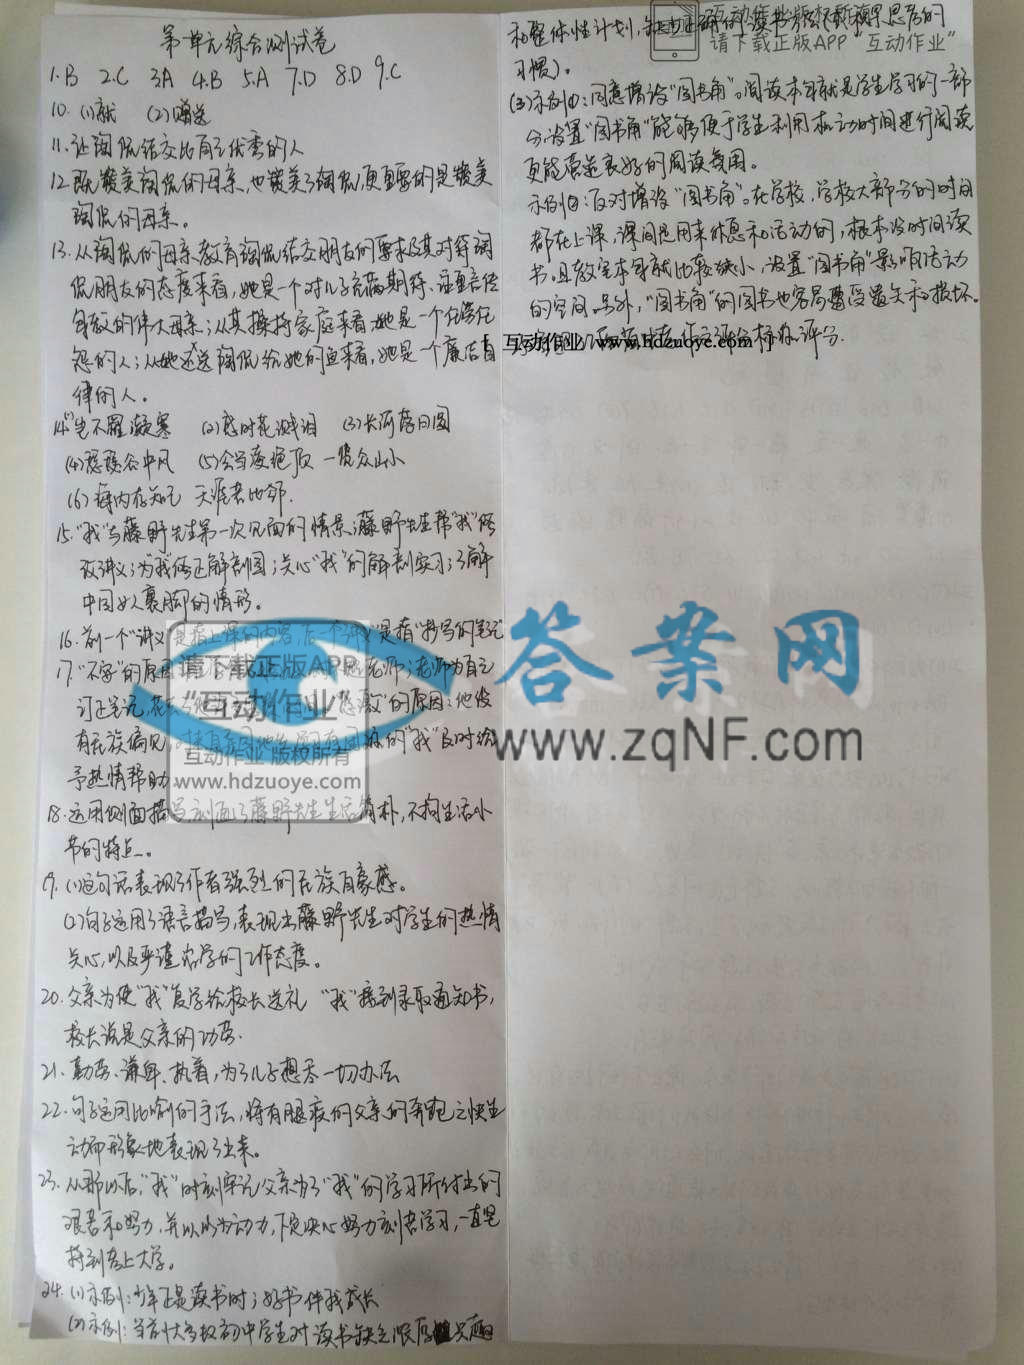 第一单元综合测试卷
1.B 2.C 3.A 4.B 5.A 7.D 8.D 9.C
10. (1)就 (2)赠送
11. 让陶侃结交比自己优秀的人
12. 既赞美陶侃的母亲,也赞美了陶侃,更重要的是赞美
陶侃的母亲。
13. 从陶侃的母亲教育陶侃结交朋友的要求及其对待陶
侃朋友的态度来看,她是一个对儿子充满期待、注重言传
身教的伟大母亲;从其操持家庭来看,她是一个任劳任
怨的人;从她送还陶侃给她的鱼来看,她是一个廉洁自
律的人。
14. (1)岂不罹凝寒 (2)感时花溅泪 (3)长河落日圆
(4)瑟瑟谷中风 (5)会当凌绝顶 一览众山小
(6)海内存知己 天涯若比邻.
15. "我"与藤野先生第一次见面的情景;藤野先生帮"我"修
改讲义;为"我"修正解剖图;关心"我"的解剖实习;了解
中国女人裹脚的情形。
16. 前一个"讲义"是指上课的内容,后一个"讲义"是指"抄写的笔记
17. "不安"的原因
老师;老师为自己
订正笔记,
"感激"的原因:他没
有民族偏见,
的"我"及时给
予热情帮助
18. 运用侧面描写,刻画了藤野先生生活简朴,不拘生活小
节的特点。
19. (1)这句话表现了作者强烈的民族自豪感。
(2)句子运用了语言描写,表现出藤野先生对学生的热情
关心,以及严谨治学的工作态度。
20. 父亲为使"我"复学给校长送礼 "我"接到录取通知书,
校长说是父亲的功劳.
21. 勤劳、谦卑、执着,为了儿子想尽一切办法
22. 句子运用比喻的手法,将有腿疾的父亲的奔跑之快生
动而形象地表现了出来。
23. 从那以后,"我"时刻牢记父亲为了"我"的学习所付出的
艰苦和努力,并以此为动力,下定决心努力刻苦学习,一直坚
持到考上大学。
24. (1)示例:少年正是读书时;好书伴我成长
(2)示例:当前大多数初中学生对读书缺乏浓厚的兴趣
和整体性计划,缺乏正确的读书
思考的
习惯)。
(3)示例①:同意增设"图书角"。阅读本身就是学生学习的一部
分,设置"图书角"能够便于学生利用机动时间进行阅读
更能营造良好的阅读氛围。
示例②:反对增设"图书角"。在学校,学校大部分的时间
都在上课,课间是用来休息和活动的,根本没时间读
书。且教室本身就比较狭小,设置"图书角"影响活动
的空间。另外,"图书角"的图书也容易遭受遗失和损坏。
评分标准评分.
互动作业 www.hdzuoye.com
请下载正版APP "互动作业"
请下载正版APP
"互动作业"
互动作业 版权所有
www.hdzuoye.com
答案网
www.zqNF.com